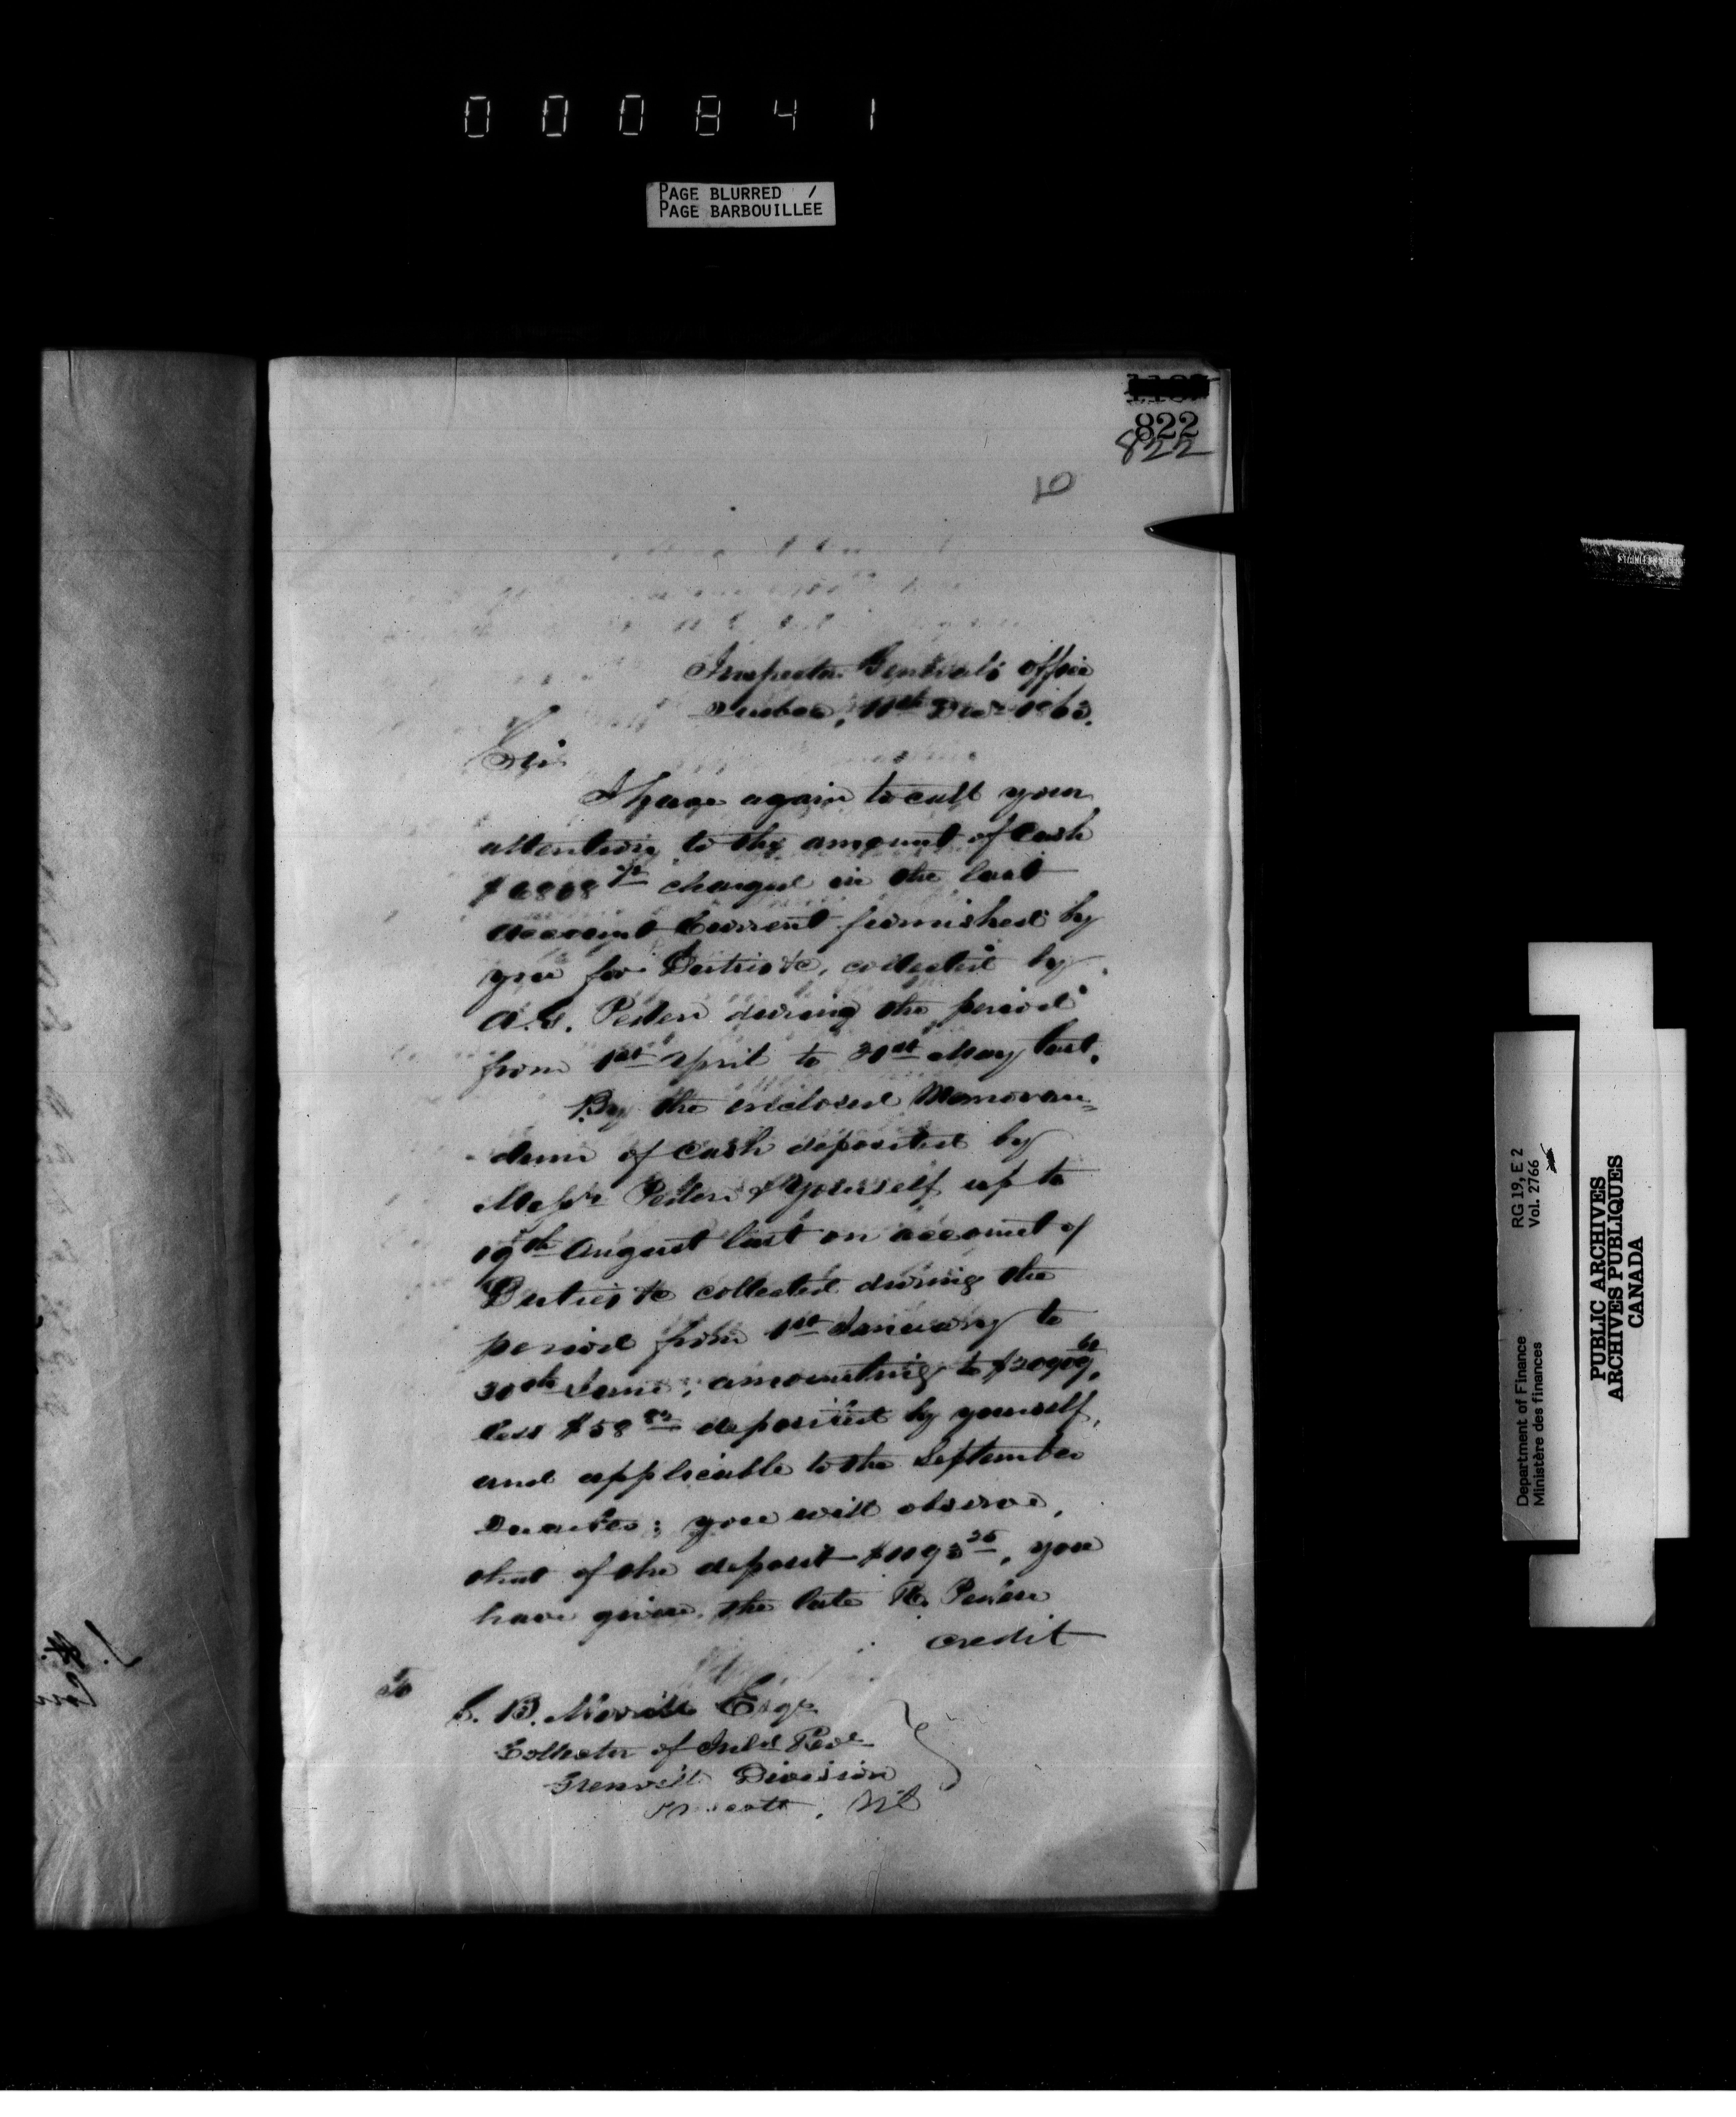 000841
PAGE BLURRED /
PAGE BARBOUILLEE
822
822
Inspector General's Office
Quebec, 11th Decr 1863.
Sir
I have again to call your
attention to the amount of Cash
charged in the last
Account Current furnished by
you for Duties &c, collected by
A. G. Peden during the period
from 1st April to 31st May last.
By the enclosed Memoran=
-dum of Cash deposited by
Messrs Peden & Yourself up to
19th August last on account of
Duties &c collected during the
period from 1st January to
30th June, amounting to
less $58 deposited by yourself,
and applicable to the September
Quarter; you will observe,
that of the deposit $1193 25, you
have given the late Mr. Peden
credit
B. Merrill Esqr
Collector of Inld Reve
Grenville Division
Prescott,
RG 19, E 2
Vol. 2766
Department of Finance
Ministère des finances
PUBLIC ARCHIVES
ARCHIVES PUBLIQUES
CANADA